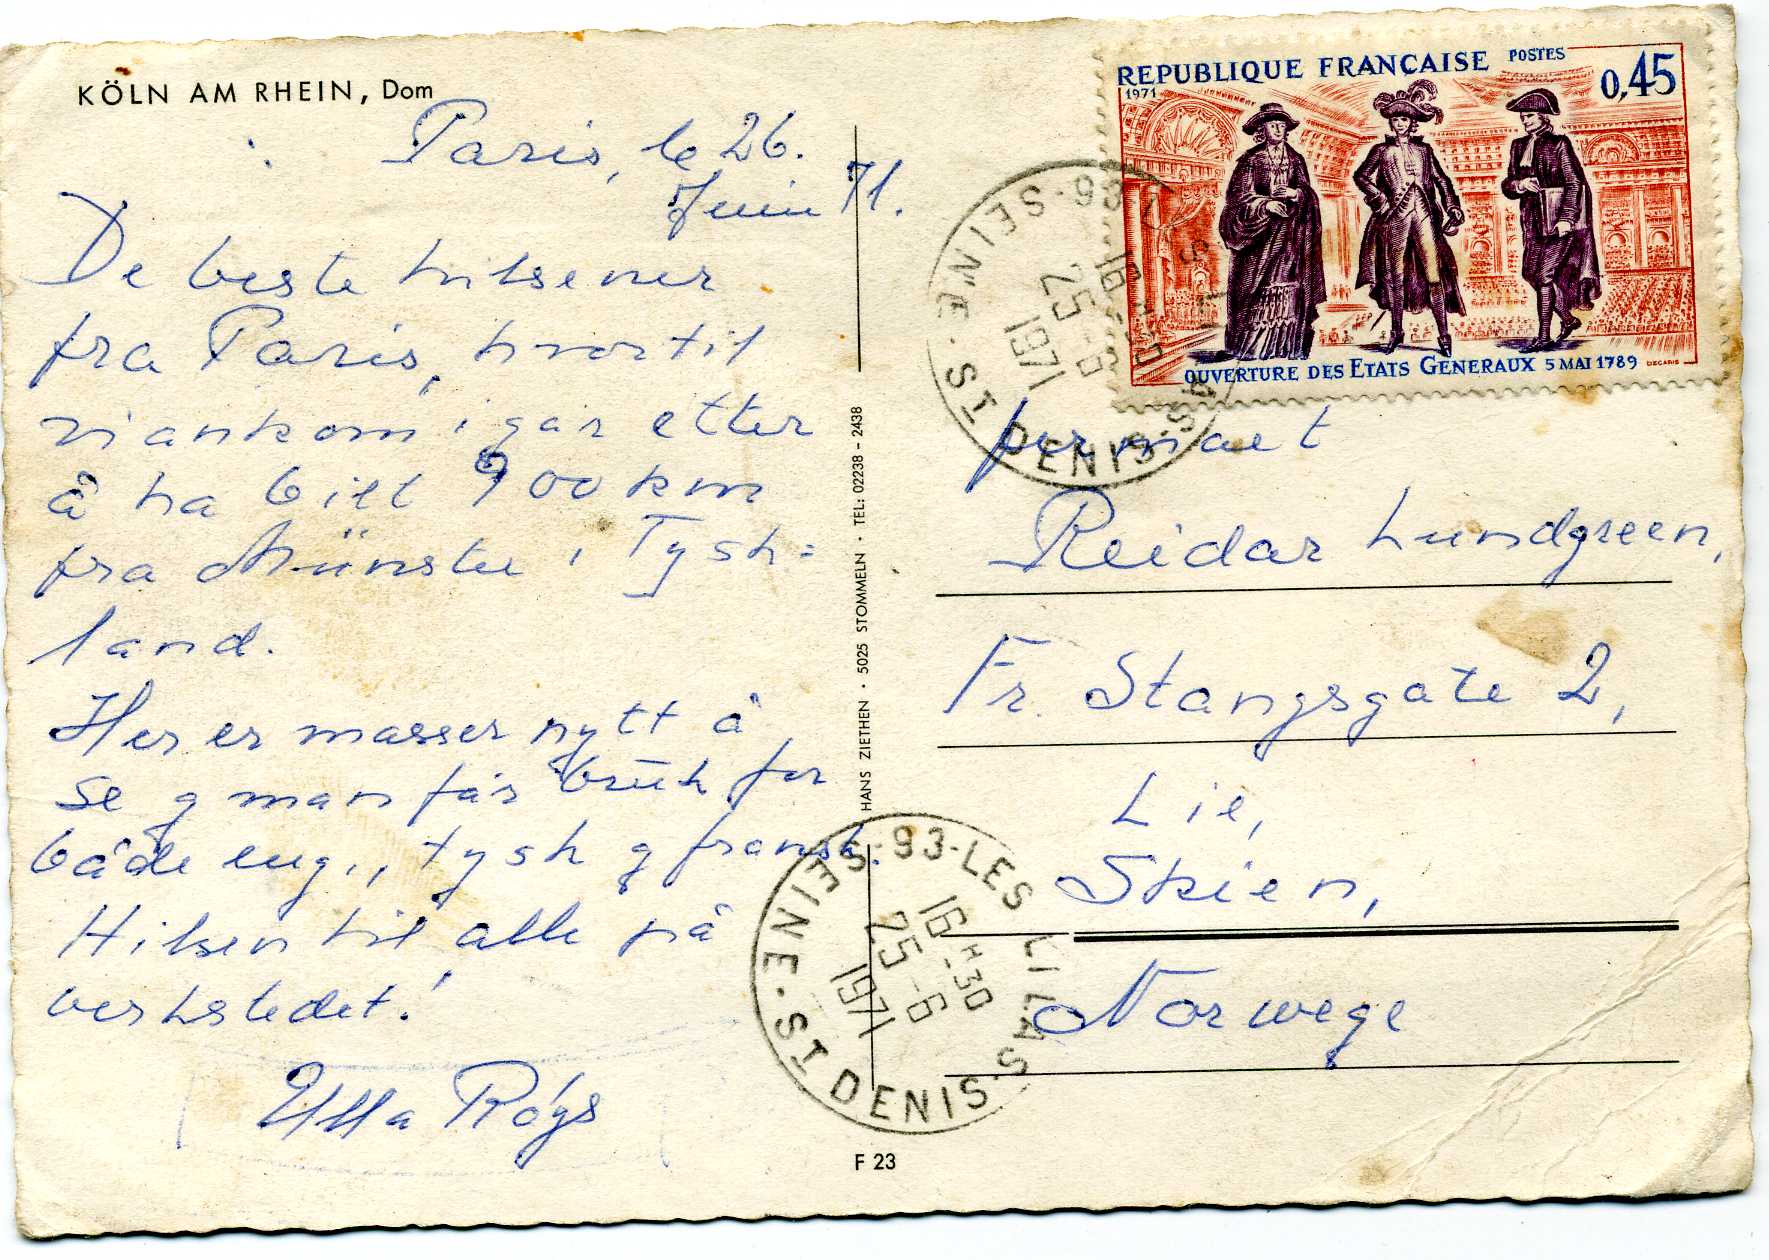 KÖLN AM RHEIN, Dom
Paris, le 26.
Juin 71.
De beste hilsener
fra Paris, hvortil
vi ankom i går etter
å ha bilt 900 km
fra Münster i Tysk=
land.
Her er masser nytt å
se og man får bruk for
både eng., tysk og fransk.
Hilsen til alle på
verkstedet!
Ulla Röys
HANS ZIETHEN · 5025 STOMMELN · TEL: 02238 - 2438
F 23
REPUBLIQUE FRANÇAISE POSTES
1971
0,45
OUVERTURE DES ETATS GENERAUX 5 MAI 1789 DECARIS
93-LES LILAS·ST DENIS·SEINE
16H30
25-6
1971
Reidar Lundgreen,
Fr. Stangsgate 2,
Lie,
Skien,
Norwege
93-LES LILAS·S
ST DENIS·SEINE
16H30
25-6
1971